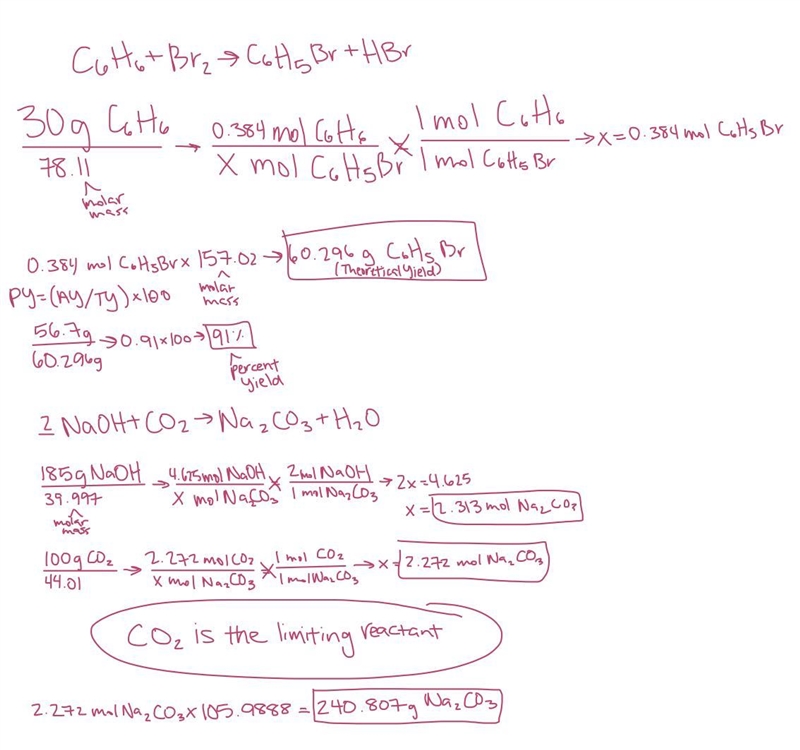 C₆H₆ + Br₂ → C₆H₅Br + HBr
30g C₆H₆ / 78.11 → 0.384 mol C₆H₆ / X mol C₆H₅Br × 1 mol C₆H₆ / 1 mol C₆H₅Br → x = 0.384 mol C₆H₅Br
molar mass
0.384 mol C₆H₅Br × 157.02 → 60.296 g C₆H₅Br
(Theoretical Yield)
molar mass
PY = (AY/TY) × 100
56.7g / 60.296g → 0.91 × 100 → 91%
percent yield
2 NaOH + CO₂ → Na₂CO₃ + H₂O
185g NaOH / 39.997 → 4.625 mol NaOH / X mol Na₂CO₃ × 2 mol NaOH / 1 mol Na₂CO₃ → 2x = 4.625
x = 2.313 mol Na₂CO₃
molar mass
100g CO₂ / 44.01 → 2.272 mol CO₂ / X mol Na₂CO₃ × 1 mol CO₂ / 1 mol Na₂CO₃ → x = 2.272 mol Na₂CO₃
CO₂ is the limiting reactant
2.272 mol Na₂CO₃ × 105.9888 = 240.807g Na₂CO₃